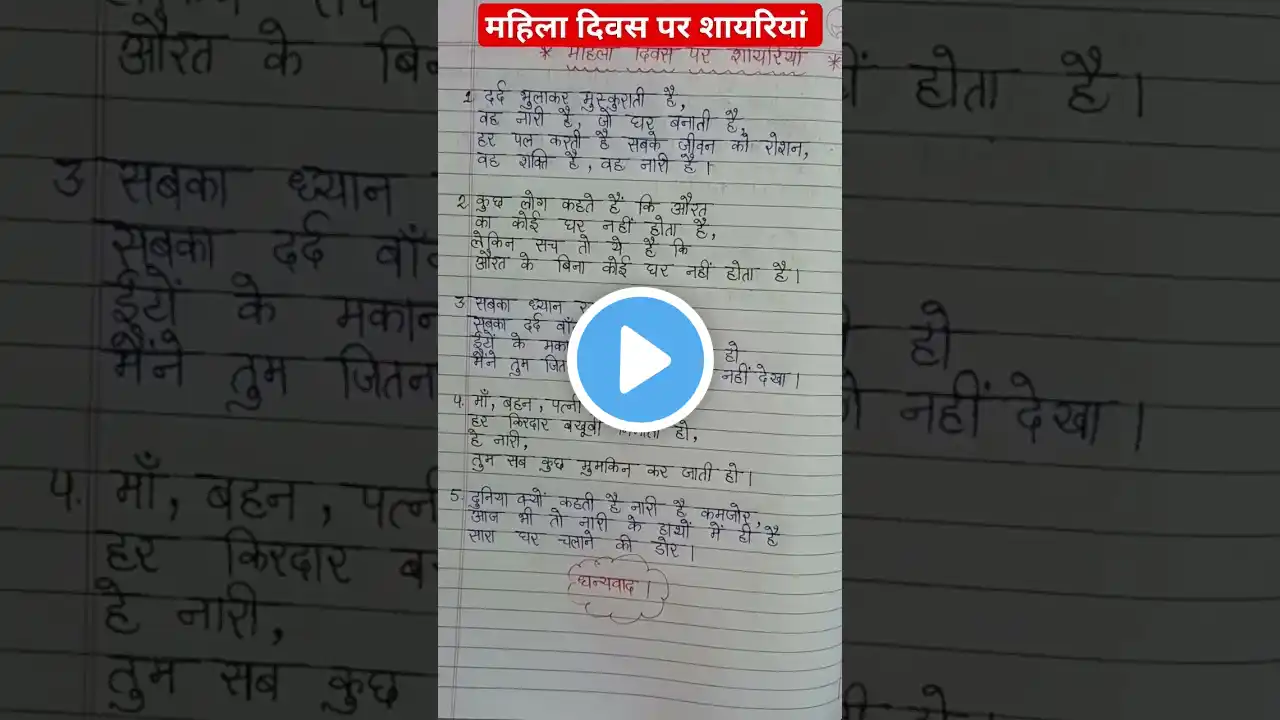 महिला दिवस पर शायरियां
* महिला दिवस पर शायरियाँ *
1. दर्द भुलाकर मुस्कुराती है,
वह नारी है, जो घर बनाती है,
हर पल करती है सबके जीवन को रोशन,
वह शक्ति है, वह नारी है।
2. कुछ लोग कहते हैं कि औरत
का कोई घर नहीं होता है,
लेकिन सच तो ये है कि
औरत के बिना कोई घर नहीं होता है।
3 सबका ध्यान
सबका दर्द
ईटों के हो
मैंने तुम नहीं देखा।
4. माँ, बहन, पत्नी
हर किरदार हो,
हे नारी,
तुम सब कुछ मुमकिन कर जाती हो।
5. दुनिया क्यों कहती है नारी है कमजोर,
आज भी तो नारी के हाथों में ही है
सारा घर चलाने की डोर।
धन्यवाद।
औरत के बि
3 सबका ध्यान
सबका दर्द
ईटों के मकान
मैंने तुम जितन
4. माँ, बहन, पत्नी
हर किरदार ब
हे नारी,
तुम सब कुछ
होता है।
हो
नहीं देखा।